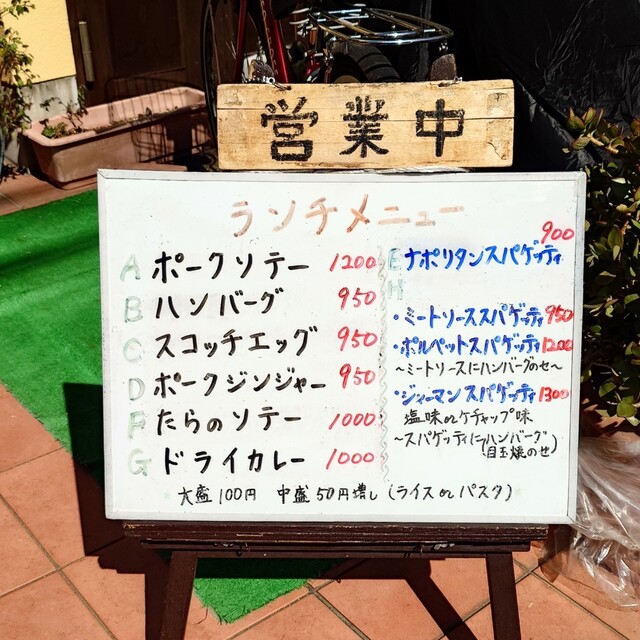 営業中
ランチメニュー
A ポークソテー 1200
B ハンバーグ 950
C スコッチエッグ 950
D ポークジンジャー 950
F たらのソテー 1000
G ドライカレー 1000
E ナポリタンスパゲッティ 900
H
・ミートソーススパゲッティ 950
・ポルペットスパゲッティ 1200
〜ミートソースにハンバーグのせ〜
・ジャーマンスパゲッティ 1300
塩味orケチャップ味
〜スパゲッティにハンバーグ
目玉焼のせ)
大盛100円 中盛50円増し(ライスorパスタ)